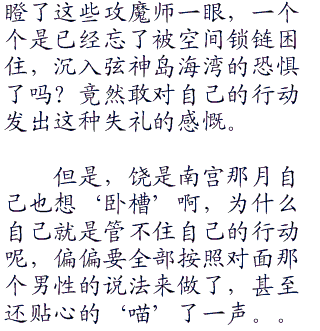 瞪了这些攻魔师一眼，一个
个是已经忘了被空间锁链困
住，沉入弦神岛海湾的恐惧
了吗？竟然敢对自己的行动
发出这种失礼的感慨。
但是，饶是南宫那月自
己也想‘卧槽’啊，为什么
自己就是管不住自己的行动
呢，偏偏要全部按照对面那
个男性的说法来做了，甚至
还贴心的‘喵’了一声。。